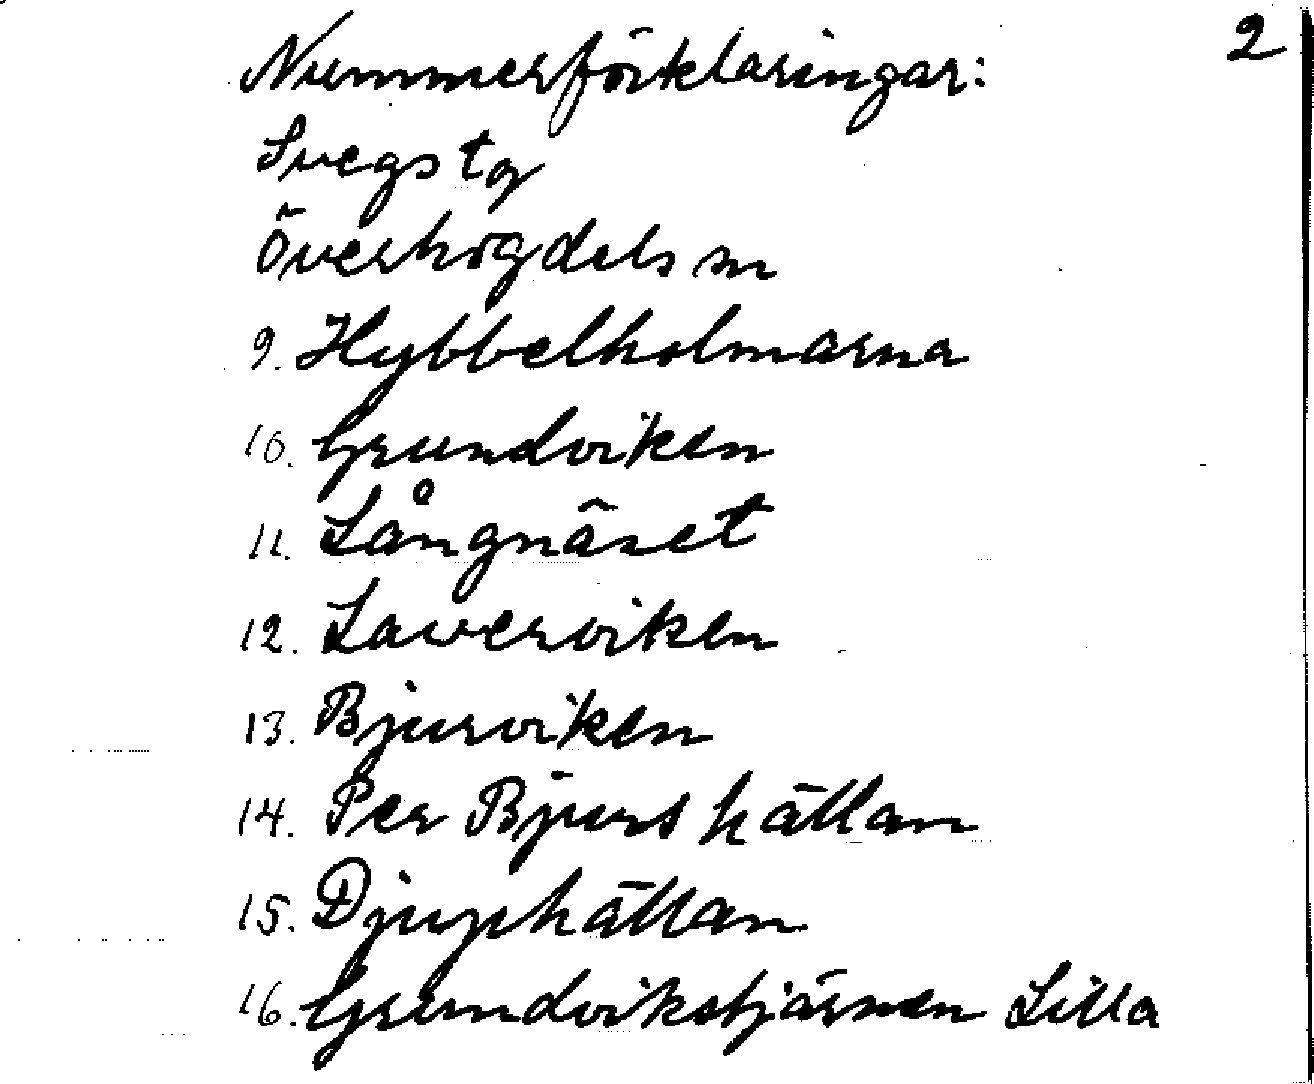 2
Nummerförklaringar:
Svegs tg
Överhogdals sn
9. Hybbelholmarna
10. Grundviken
11. Långnäset
12. Laverviken
13. Bjurviken
14. Per Bjurs hällan
15. Djuphällan
16. Grundvikstjärnen Lilla